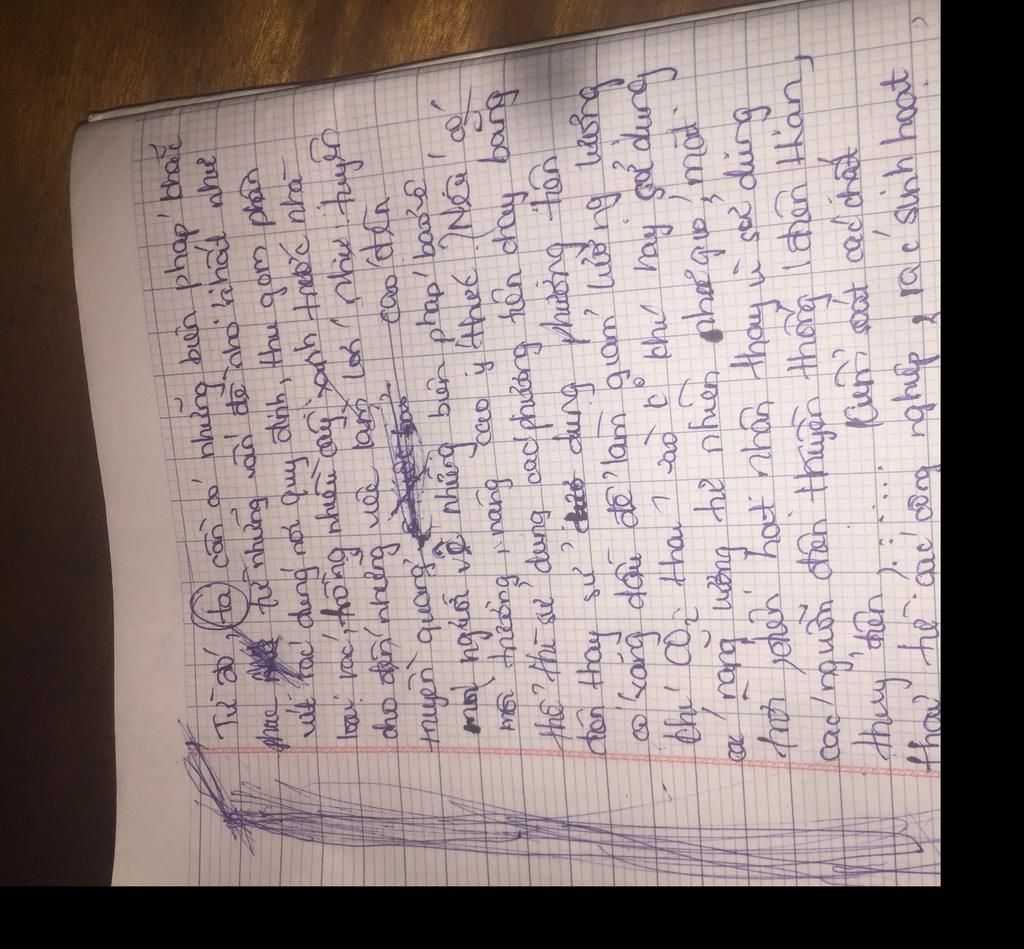 Từ đó, ta cần có những biện pháp khắc
phục từ những vấn đề nhỏ nhất như
vứt rác đúng nơi quy định, thu gom phân
loại rác, trồng nhiều cây xanh trước nhà
cho đến những việc làm lớn như tuyên
truyền quảng cáo đến
mọi người về những biện pháp bảo vệ
môi trường, nâng cao ý thức. Nếu có
thể thì sử dụng các phương tiện chạy bằng
điện thay sử dụng phương tiện
có xăng dầu để làm giảm lượng lượng
khí CO2 thải ra c phí hay sử dụng
các năng lượng tự nhiên như gió, mặt
trời, phản hạt nhân thay vì sử dụng
các nguồn điện truyền thống (điện than,
thủy điện)..... Cuối các chất
thải từ các công nghiệp, rác sinh hoạt